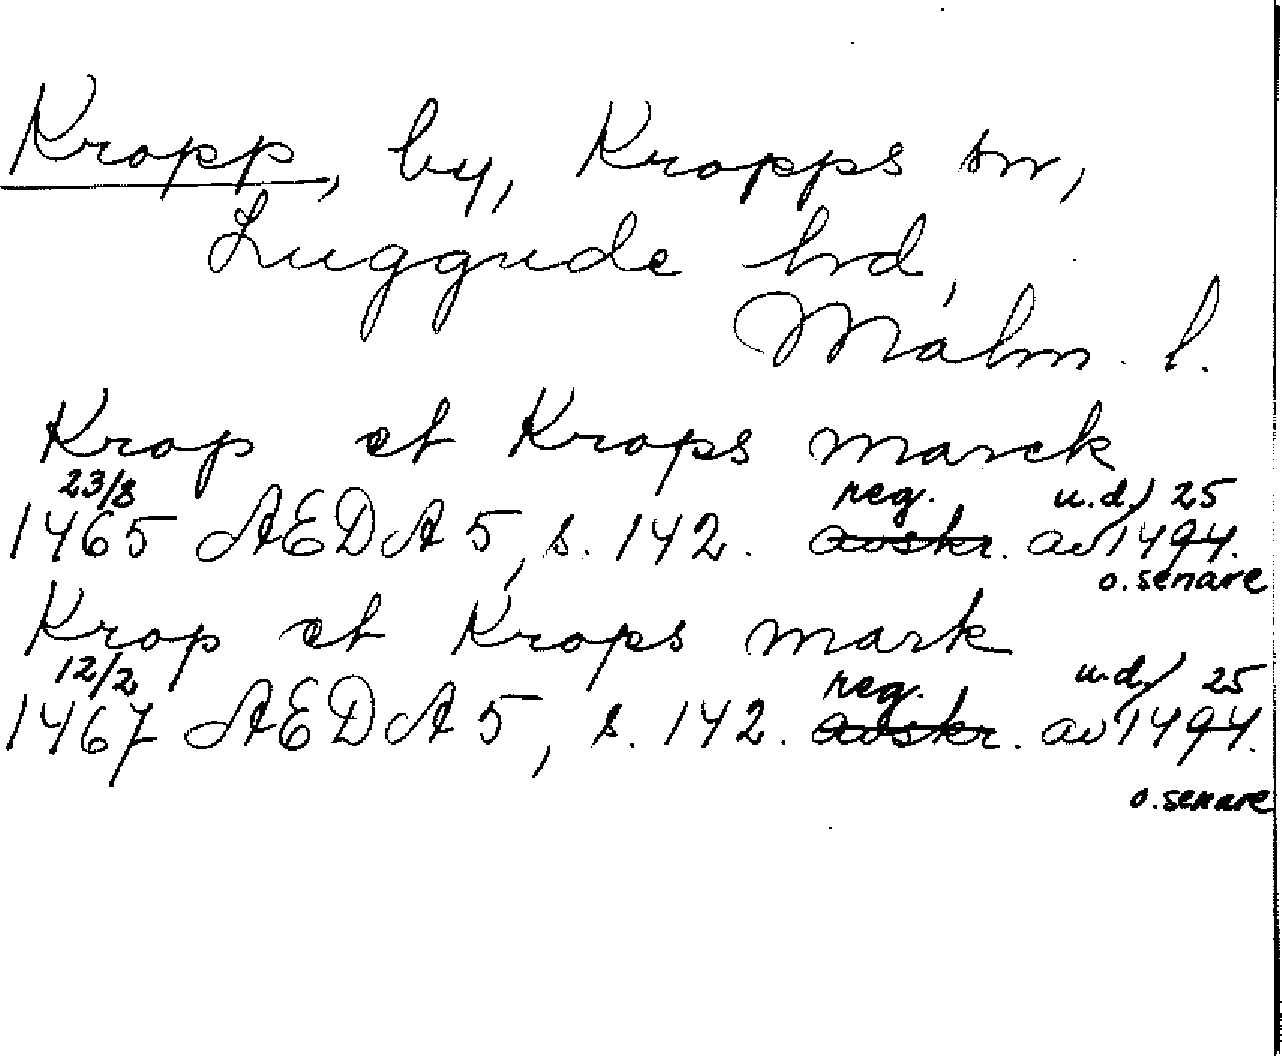 Kropp, by, Kropps sn,
Luggude hrd,
Malm. l.
Krop et Krops marck
23/8 reg. u.d./ 25
1465 AEDA 5, s. 142. avskr. av 1494.
o. senare
Krop et Krops mark
12/2 reg. u.d./ 25
1467 AEDA 5, s. 142. avskr. av 1494.
o. senare